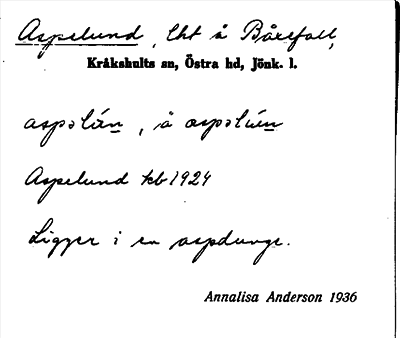 Aspelund, lht å Bårefall,
Kråkshults sn, Östra hd, Jönk. l.
aspəlán, å aspəlún
Aspelund kb 1924
Ligger i en aspdunge.
Annalisa Anderson 1936